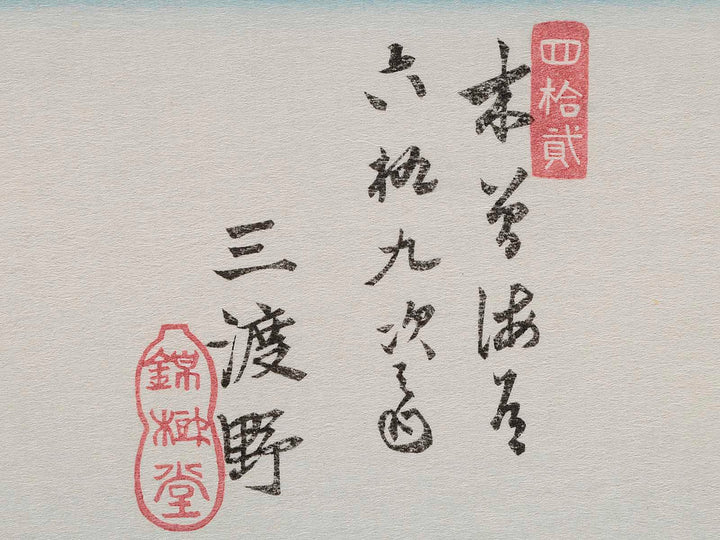 四拾貳
木曽海道
六拾九次之内
三渡野
錦樹堂